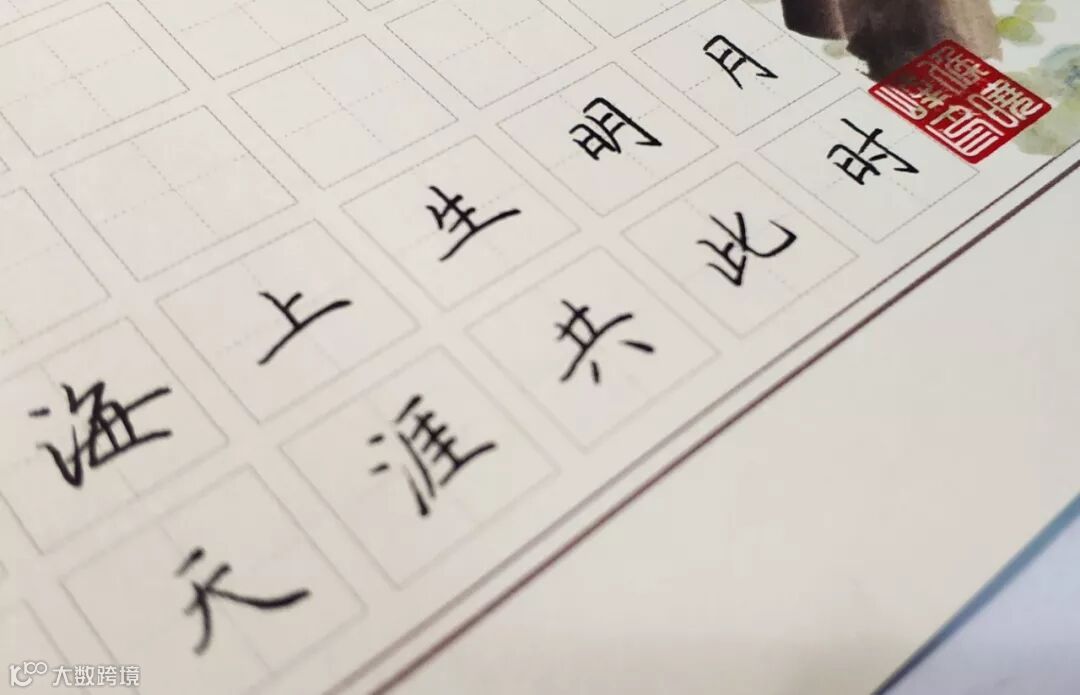 海上生明月
天涯共此时
大数跨境